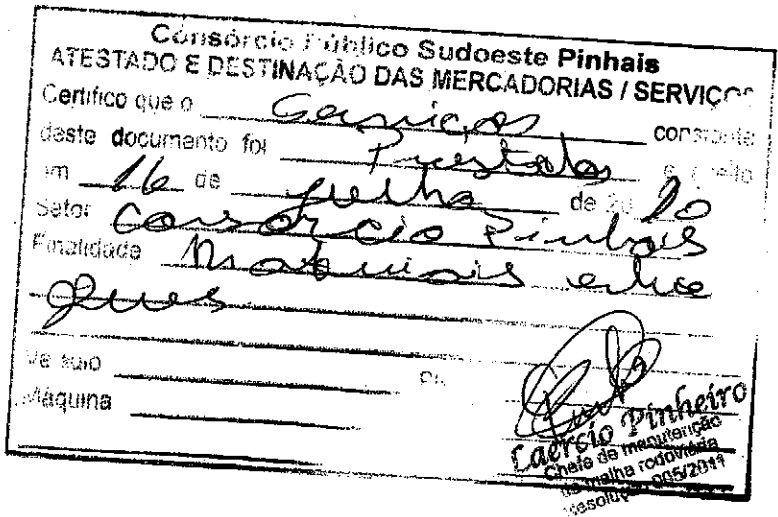 Consórcio Público Sudoeste Pinhais
ATESTADO E DESTINAÇÃO DAS MERCADORIAS / SERVIÇOS
Certifico que o Serviços constante
deste documento foi Prestados e aceito
em 16 de Julho de 20 20
Setor Consorcio Pinhais
Finalidade Materiais entre
gues
Veículo
Máquina
Laercio Pinheiro
Chefe de manutenção
da malha rodoviária
Resolução 005/2011